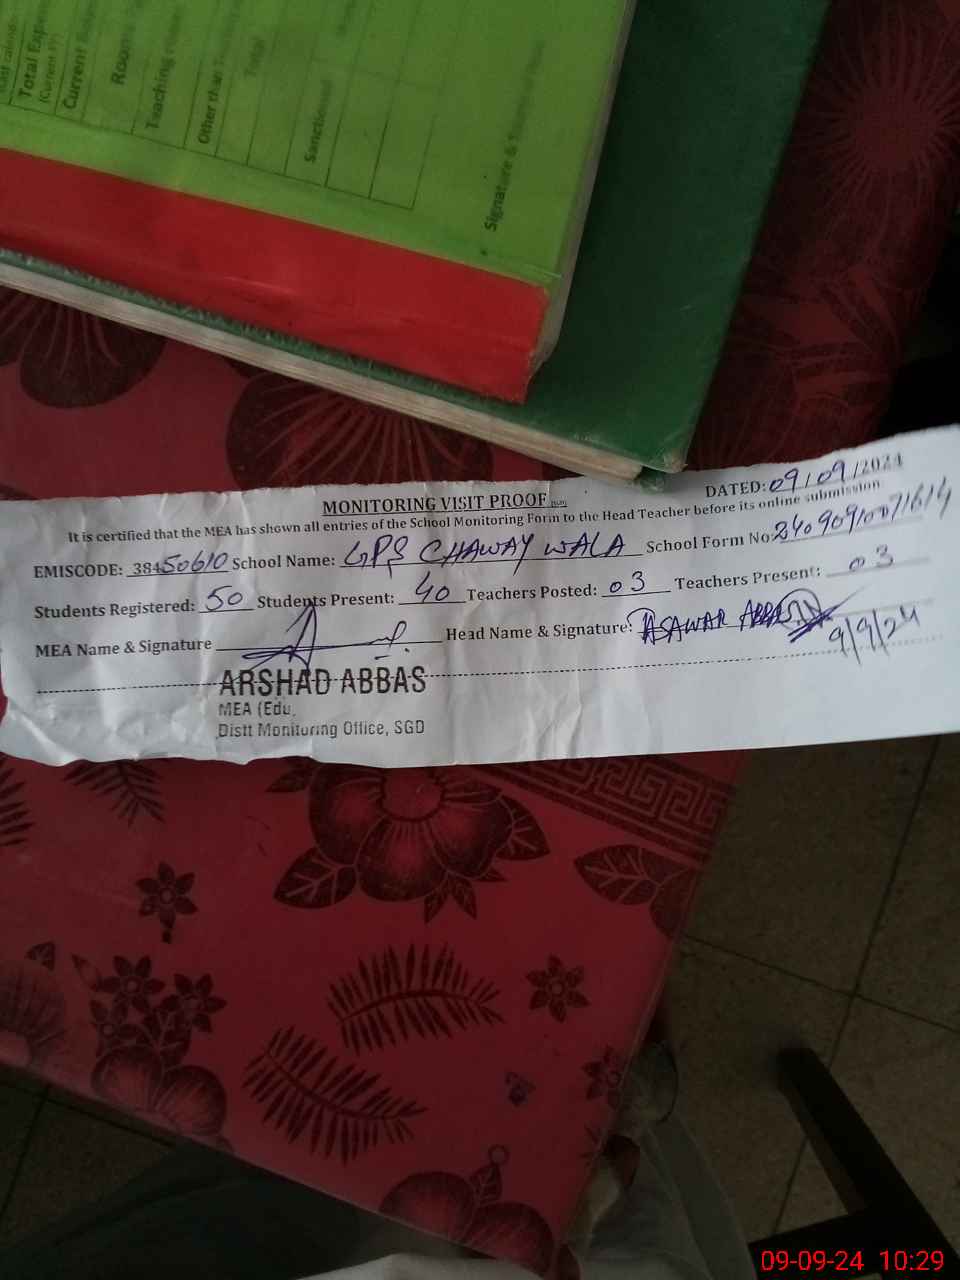 Total Exp
(Current FY)
Current
Room
Teaching
Other than
Total
Sanctioned
Signature &
MONITORING VISIT PROOF
DATED: 09/09/2024
It is certified that the MEA has shown all entries of the School Monitoring Form to the Head Teacher before its online submission
EMISCODE: 38450610 School Name: GPS CHAWAY WALA School Form No:
Students Registered: 50 Students Present: 40 Teachers Posted: 03 Teachers Present: 03
MEA Name & Signature Head Name & Signature: ASAWAR ABBAS
9/9/24
ARSHAD ABBAS
MEA (Edu
Distt Monitoring Office, SGD
09-09-24 10:29